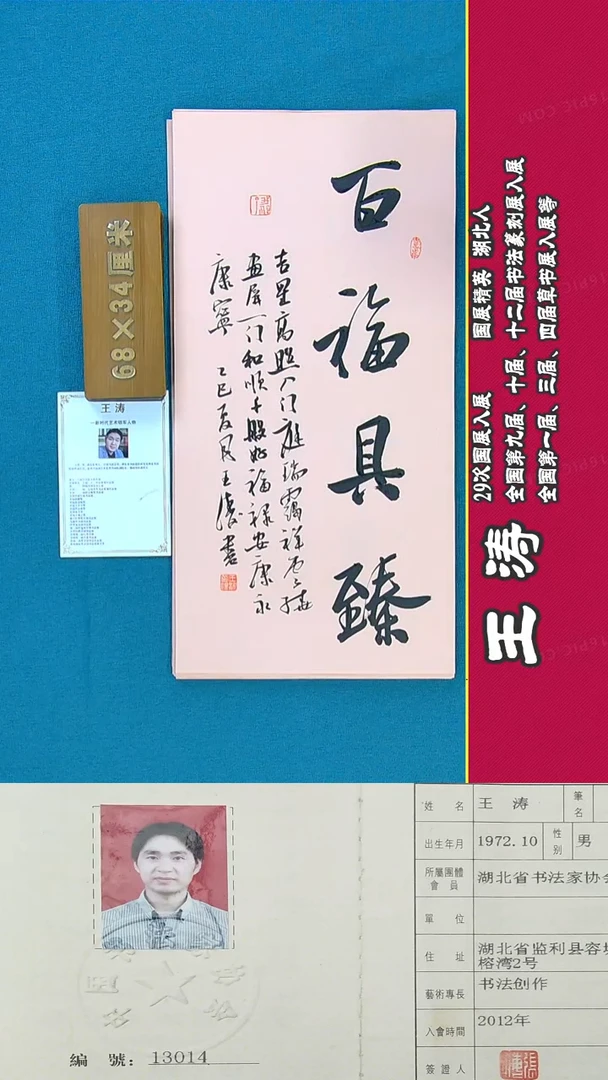 百福具臻
吉星高照入门庭瑞霭祥光绕
画屏一门和顺千般好福禄安康永
康宁 乙巳夏月王涛书
68×34厘米
王 涛
29次国展入展 国展精英 湖北人
全国第九届、十届、十二届书法篆刻展入展
全国第一届、三届、四届草书展入展等
王涛
编 號：13014
姓 名 王 涛 筆名
出生年月 1972.10 性别 男
所屬團體會員 湖北省书法家协会
單 位
住 址 湖北省监利县容城
榕湾2号
藝術專長 书法创作
入會時間 2012年
簽證人